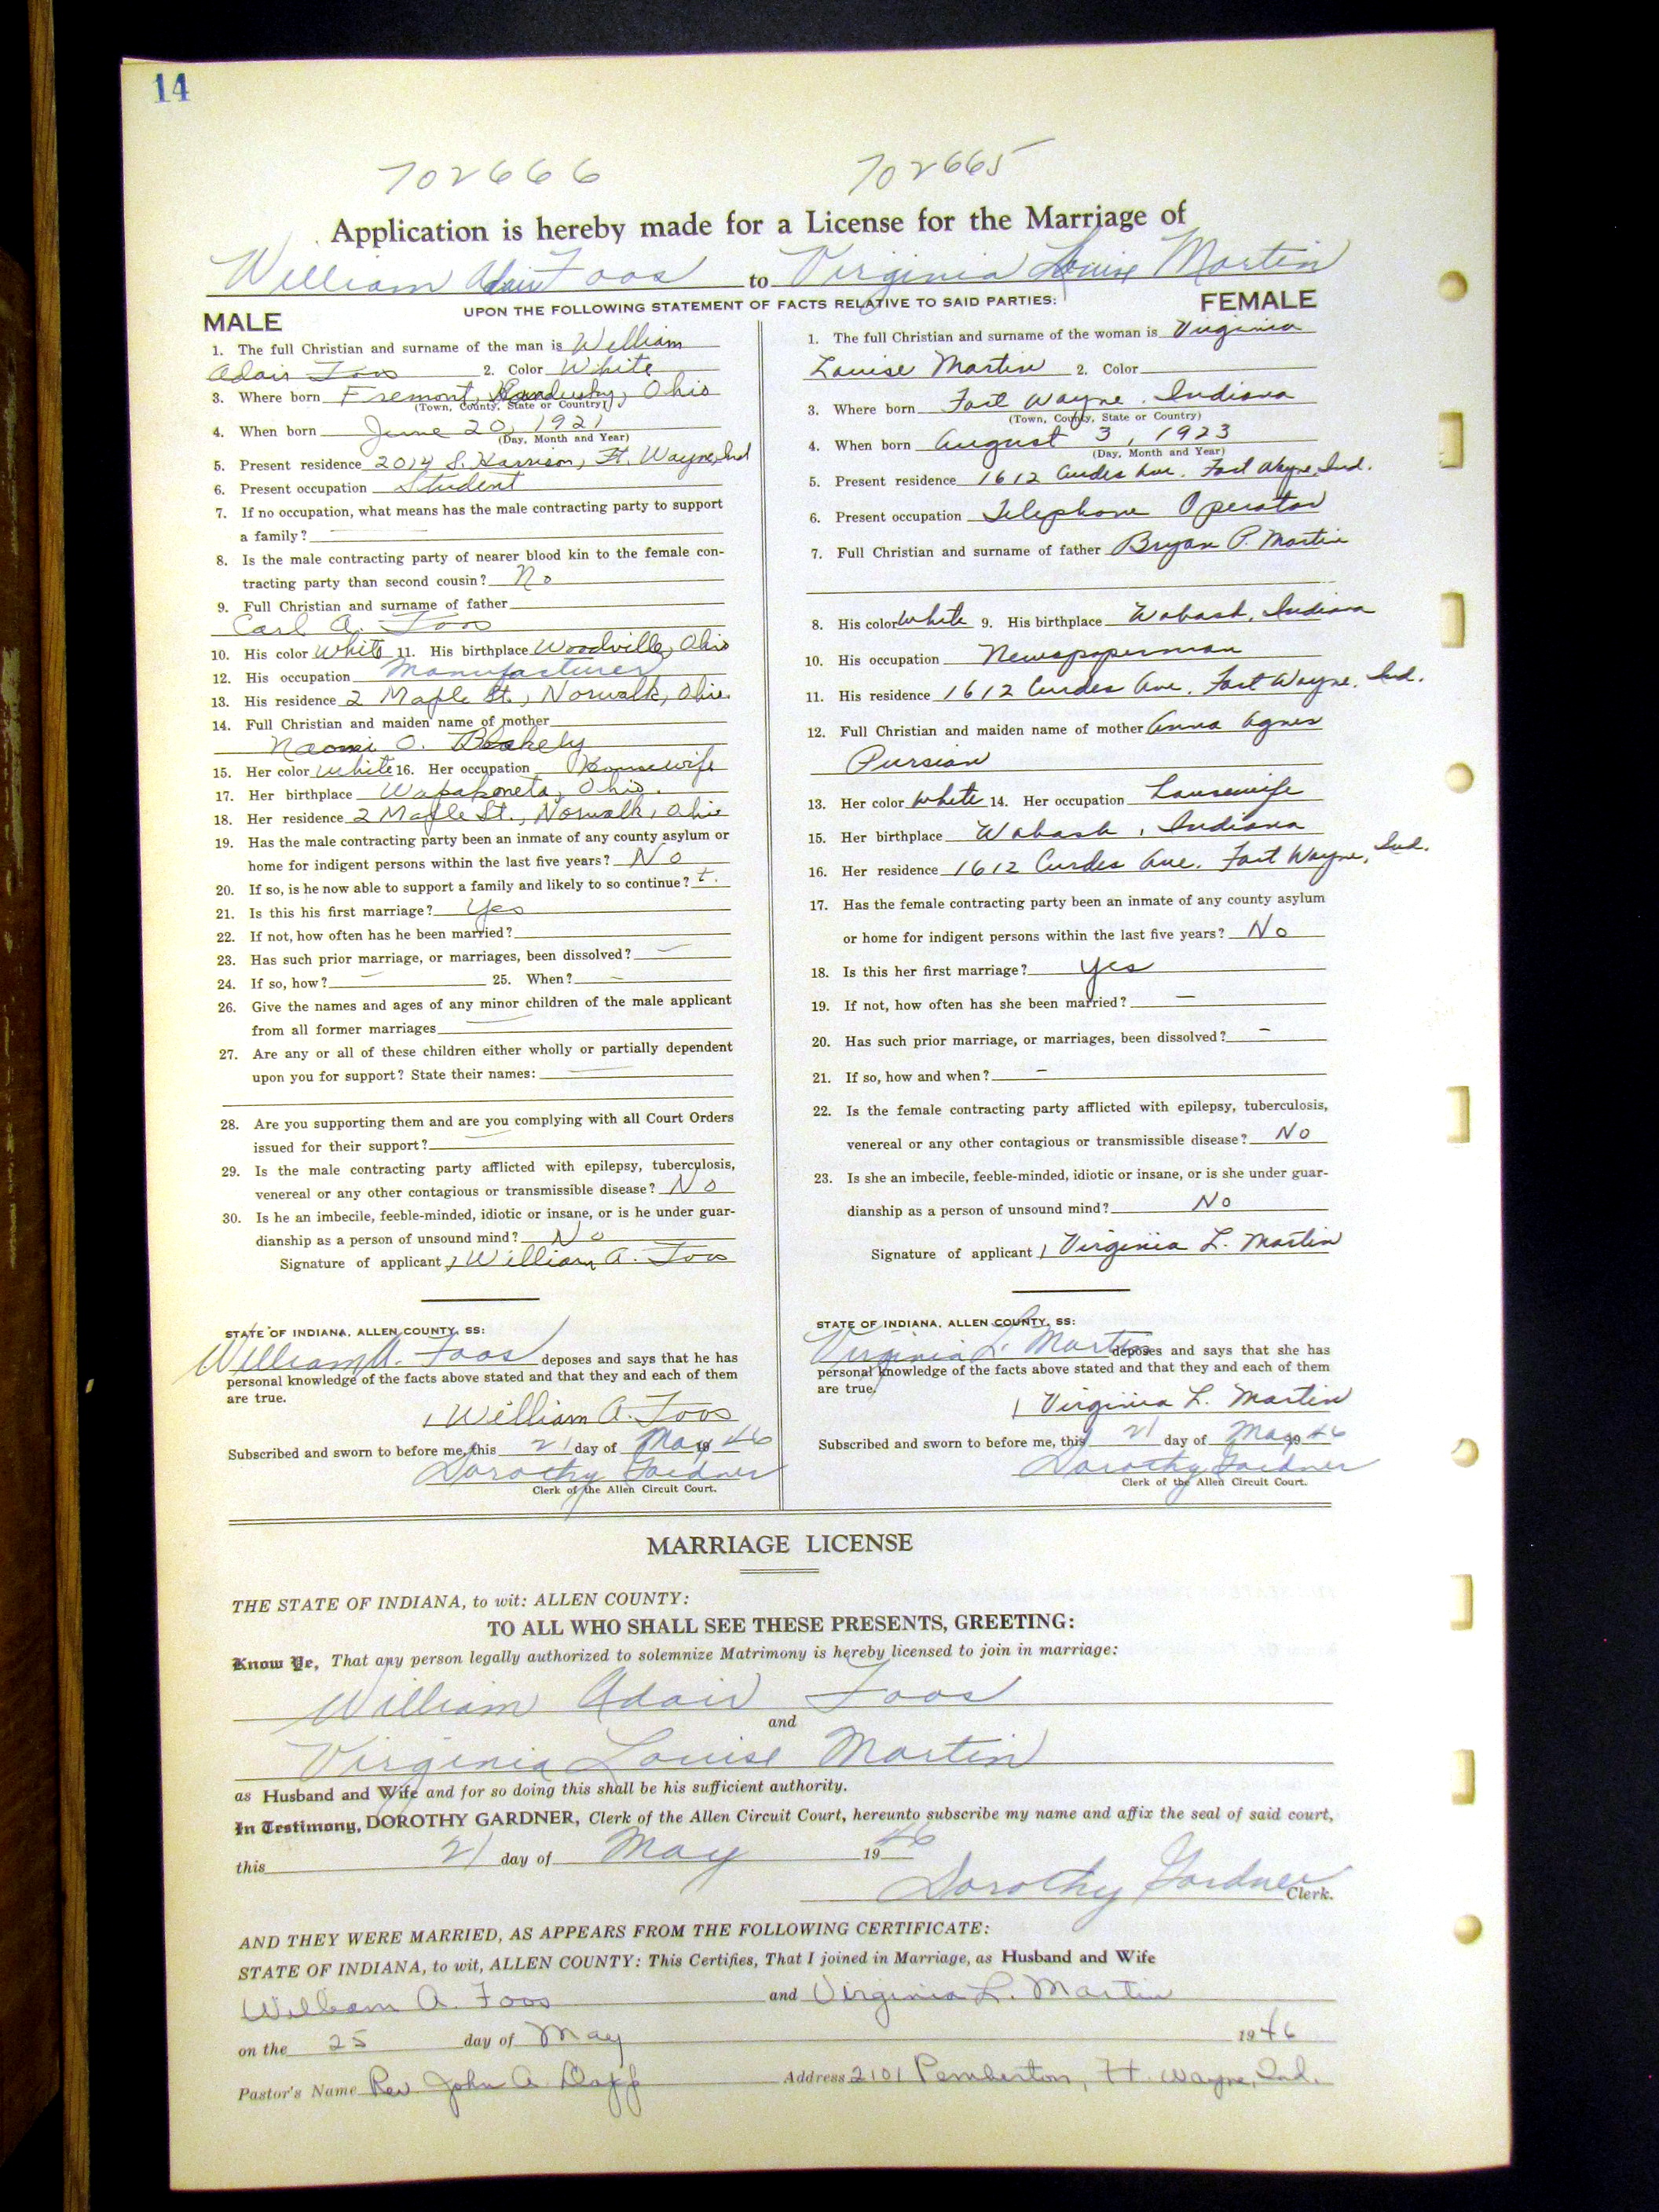 14
702666 702665
Application is hereby made for a License for the Marriage of
William Adair Foos to Virginia Louise Martin
UPON THE FOLLOWING STATEMENT OF FACTS RELATIVE TO SAID PARTIES:
MALE
1. The full Christian and surname of the man is William
Adair Foos 2. Color White
3. Where born Fremont, Sandusky, Ohio
(Town, County, State or Country)
4. When born June 20, 1921
(Day, Month and Year)
5. Present residence 2014 S. Harrison, Ft. Wayne, Ind
6. Present occupation Student
7. If no occupation, what means has the male contracting party to support
a family? —
8. Is the male contracting party of nearer blood kin to the female con-
tracting party than second cousin? No
9. Full Christian and surname of father
Carl A. Foos
10. His color White 11. His birthplace Woodville, Ohio
12. His occupation Manufacturer
13. His residence 2 Maple St., Norwalk, Ohio
14. Full Christian and maiden name of mother
Naomi O. Blakely
15. Her color white 16. Her occupation Housewife
17. Her birthplace Wapakoneta, Ohio.
18. Her residence 2 Maple St., Norwalk, Ohio
19. Has the male contracting party been an inmate of any county asylum or
home for indigent persons within the last five years? No
20. If so, is he now able to support a family and likely to so continue?
21. Is this his first marriage? Yes
22. If not, how often has he been married?
23. Has such prior marriage, or marriages, been dissolved? —
24. If so, how? — 25. When? —
26. Give the names and ages of any minor children of the male applicant
from all former marriages —
27. Are any or all of these children either wholly or partially dependent
upon you for support? State their names: —
28. Are you supporting them and are you complying with all Court Orders
issued for their support? —
29. Is the male contracting party afflicted with epilepsy, tuberculosis,
venereal or any other contagious or transmissible disease? No
30. Is he an imbecile, feeble-minded, idiotic or insane, or is he under guar-
dianship as a person of unsound mind? No
Signature of applicant William A. Foos
STATE OF INDIANA, ALLEN COUNTY, SS:
William A. Foos deposes and says that he has
personal knowledge of the facts above stated and that they and each of them
are true.
William A. Foos
Subscribed and sworn to before me, this 21 day of May 19 46
Dorothy Gardner
Clerk of the Allen Circuit Court.
FEMALE
1. The full Christian and surname of the woman is Virginia
Louise Martin 2. Color
3. Where born Fort Wayne, Indiana
(Town, County, State or Country)
4. When born August 3, 1923
(Day, Month and Year)
5. Present residence 1612 Curdes Ave. Fort Wayne, Ind.
6. Present occupation Telephone Operator
7. Full Christian and surname of father Bryan P. Martin
8. His color White 9. His birthplace Wabash, Indiana
10. His occupation Newspaperman
11. His residence 1612 Curdes Ave. Fort Wayne, Ind.
12. Full Christian and maiden name of mother Anna Agnes
Pursian
13. Her color White 14. Her occupation Housewife
15. Her birthplace Wabash, Indiana
16. Her residence 1612 Curdes Ave. Fort Wayne, Ind.
17. Has the female contracting party been an inmate of any county asylum
or home for indigent persons within the last five years? No
18. Is this her first marriage? Yes
19. If not, how often has she been married? —
20. Has such prior marriage, or marriages, been dissolved? —
21. If so, how and when? —
22. Is the female contracting party afflicted with epilepsy, tuberculosis,
venereal or any other contagious or transmissible disease? No
23. Is she an imbecile, feeble-minded, idiotic or insane, or is she under guar-
dianship as a person of unsound mind? No
Signature of applicant Virginia L. Martin
STATE OF INDIANA, ALLEN COUNTY, SS:
Virginia L. Martin deposes and says that she has
personal knowledge of the facts above stated and that they and each of them
are true.
Virginia L. Martin
Subscribed and sworn to before me, this 21 day of May 19 46
Dorothy Gardner
Clerk of the Allen Circuit Court.
MARRIAGE LICENSE
THE STATE OF INDIANA, to wit: ALLEN COUNTY:
TO ALL WHO SHALL SEE THESE PRESENTS, GREETING:
Know Ye, That any person legally authorized to solemnize Matrimony is hereby licensed to join in marriage:
William Adair Foos
and
Virginia Louise Martin
as Husband and Wife and for so doing this shall be his sufficient authority.
In Testimony, DOROTHY GARDNER, Clerk of the Allen Circuit Court, hereunto subscribe my name and affix the seal of said court,
this 21 day of May 19 46
Dorothy Gardner Clerk.
AND THEY WERE MARRIED, AS APPEARS FROM THE FOLLOWING CERTIFICATE:
STATE OF INDIANA, to wit, ALLEN COUNTY: This Certifies, That I joined in Marriage, as Husband and Wife
William A. Foos and Virginia L. Martin
on the 25 day of May 1946
Pastor's Name Rev John A. Address 2101 Pemberton, Ft. Wayne, Ind.